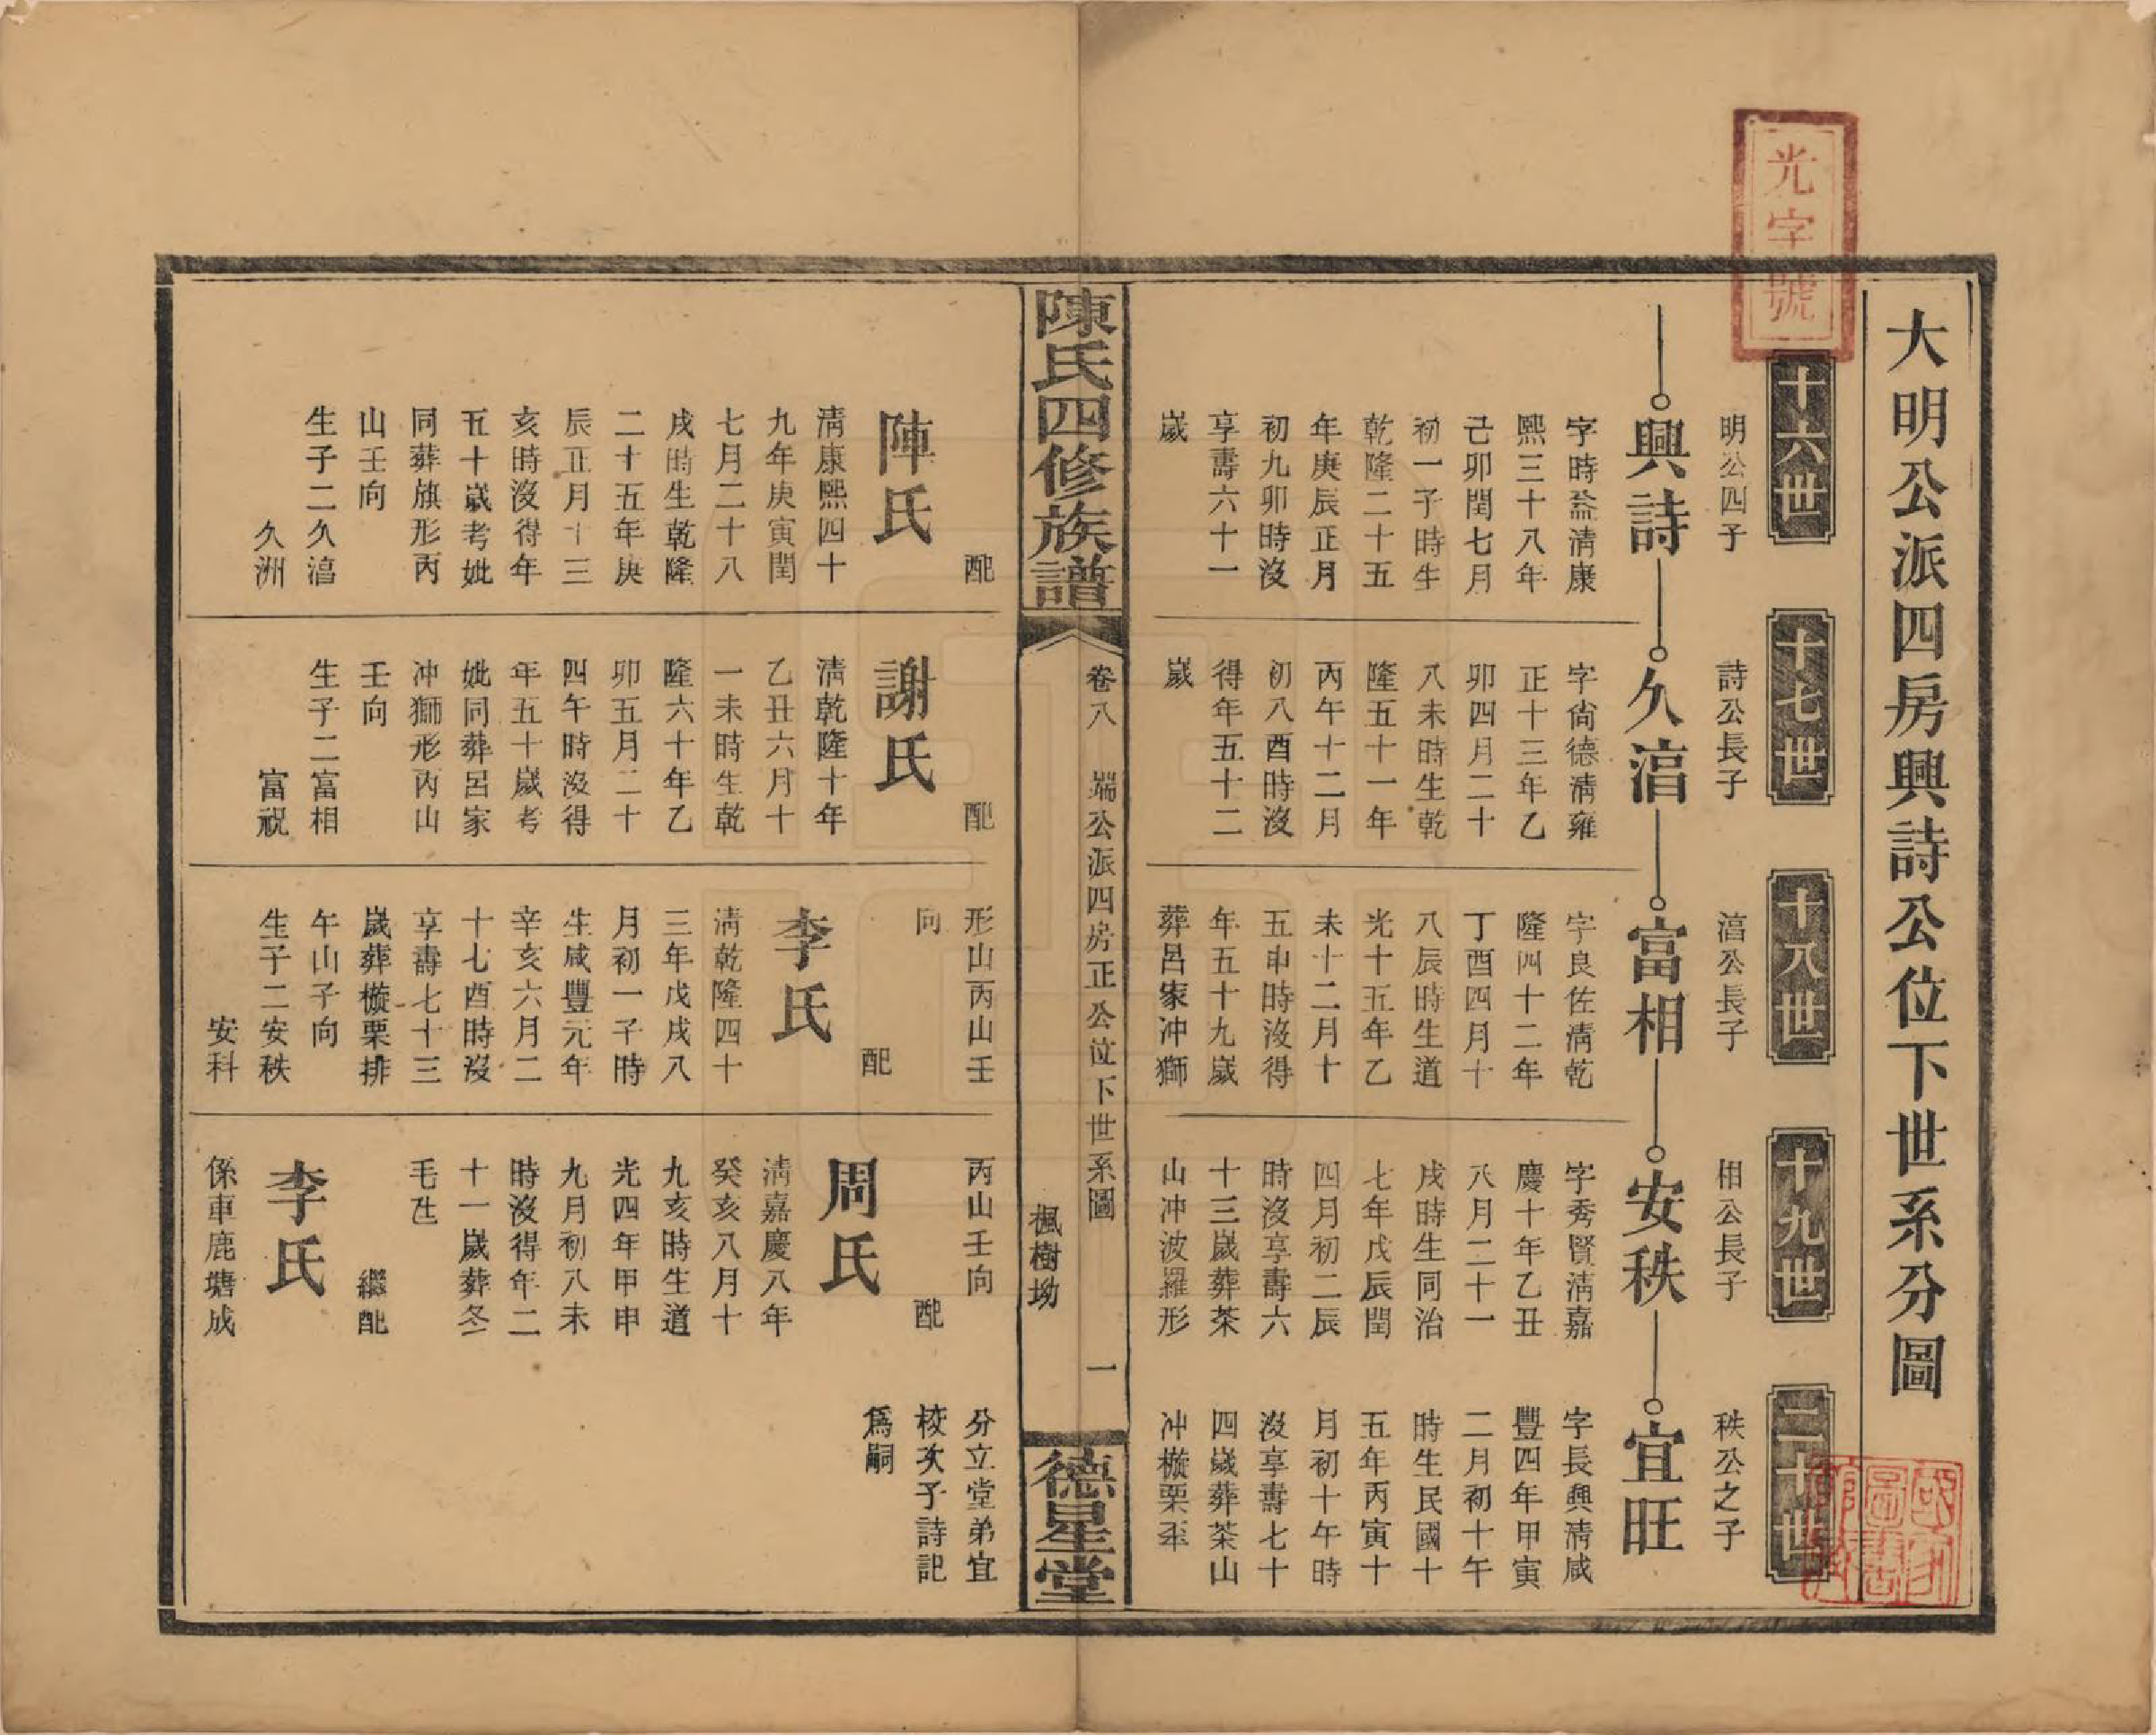 大明公派四房興詩公位下世系分圖
光字號
十六世
明公四子
興詩
字時益清康
熙三十八年
己卯閏七月
初一子時生
乾隆二十五
年庚辰正月
初九卯時沒
享壽六十一
嵗
配
陳氏
清康熙四十
九年庚寅閏
七月二十八
戌時生乾隆
二十五年庚
辰正月十三
亥時沒得年
五十嵗考妣
同葬旗形丙
山壬向
生子二久湻
久洲
十七世
詩公長子
久湻
字尙德清雍
正十三年乙
卯四月二十
八未時生乾
隆五十一年
丙午十二月
初八酉時沒
得年五十二
嵗
配
謝氏
清乾隆十年
乙丑六月十
一未時生乾
隆六十年乙
卯五月二十
四午時沒得
年五十嵗考
妣同葬呂家
冲獅形丙山
壬向
生子二富相
富祝
十八世
湻公長子
富相
字良佐清乾
隆四十二年
丁酉四月十
八辰時生道
光十五年乙
未十二月十
五申時沒得
年五十九嵗
葬呂家冲獅
形山丙山壬
向
配
李氏
清乾隆四十
三年戊戌八
月初一子時
生咸豐元年
辛亥六月二
十七酉時沒
享壽七十三
嵗葬櫢栗排
午山子向
生子二安秩
安科
十九世
相公長子
安秩
字秀賢清嘉
慶十年乙丑
八月二十一
戌時生同治
七年戊辰閏
四月初二辰
時沒享壽六
十三嵗葬茶
山冲波羅形
丙山壬向
配
周氏
清嘉慶八年
癸亥八月十
九亥時生道
光四年甲申
九月初八未
時沒得年二
十一嵗葬冬
毛
繼配
李氏
係車鹿塘成
二十世
秩公之子
宜旺
字長興清咸
豐四年甲寅
二月初十午
時生民國十
五年丙寅十
月初十午時
沒享壽七十
四嵗葬茶山
冲櫢栗坪
分立堂弟宜
校次子詩記
爲嗣
陳氏四修族譜
卷八
端公派四房正公位下世系圖
楓樹坳
一
德星堂